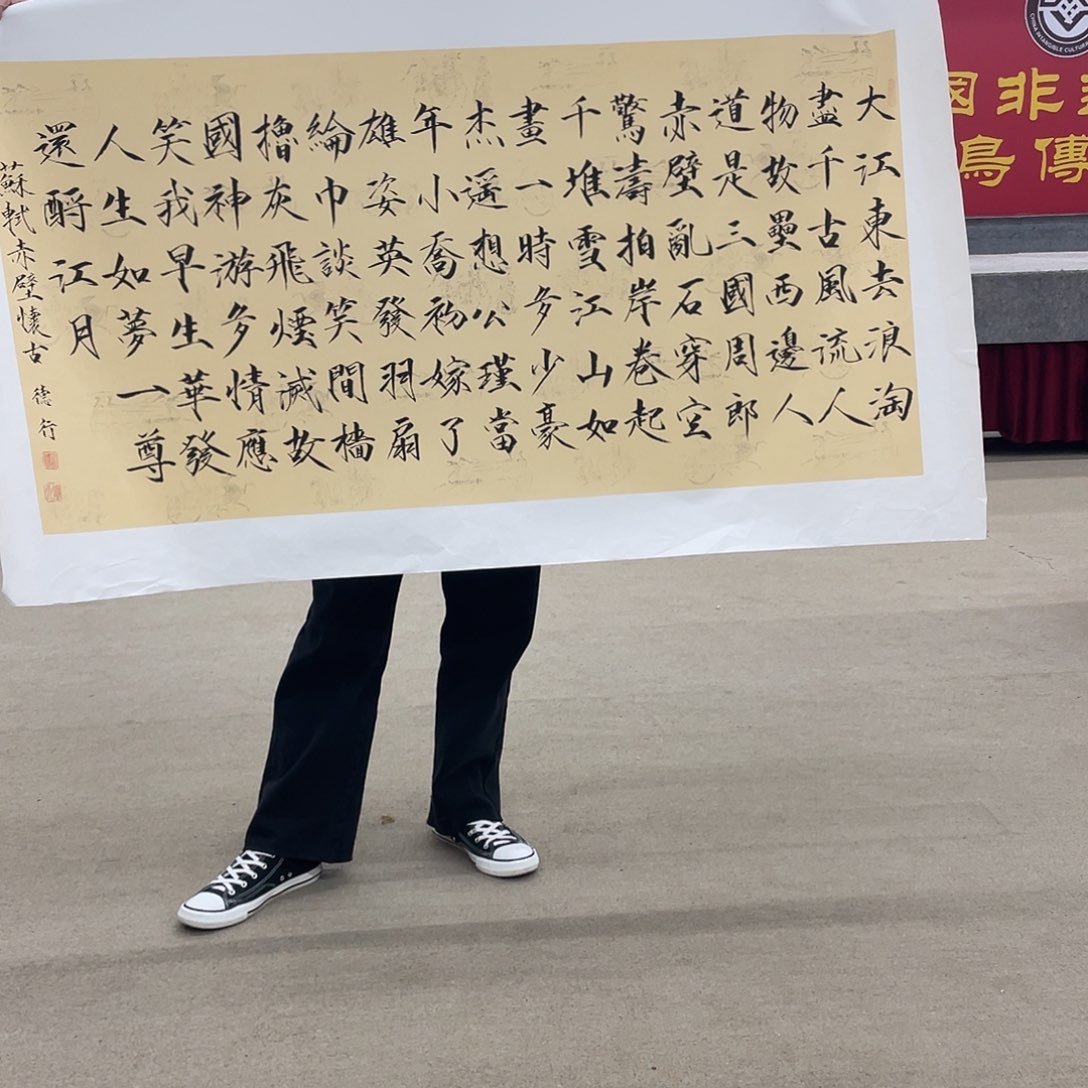 大江東去浪淘
盡千古風流人
物故壘西邊人
道是三國周郎
赤壁亂石穿空
驚濤拍岸卷起
千堆雪江山如
畫一時多少豪
杰遥想公瑾當
年小喬初嫁了
雄姿英發羽扇
綸巾談笑間檣
櫓灰飛煙滅故
國神游多情應
笑我早生華發
人生如夢一尊
還酹江月
蘇軾赤壁懷古 德行
CHINA INTANGIBLE
國非
鳥傳